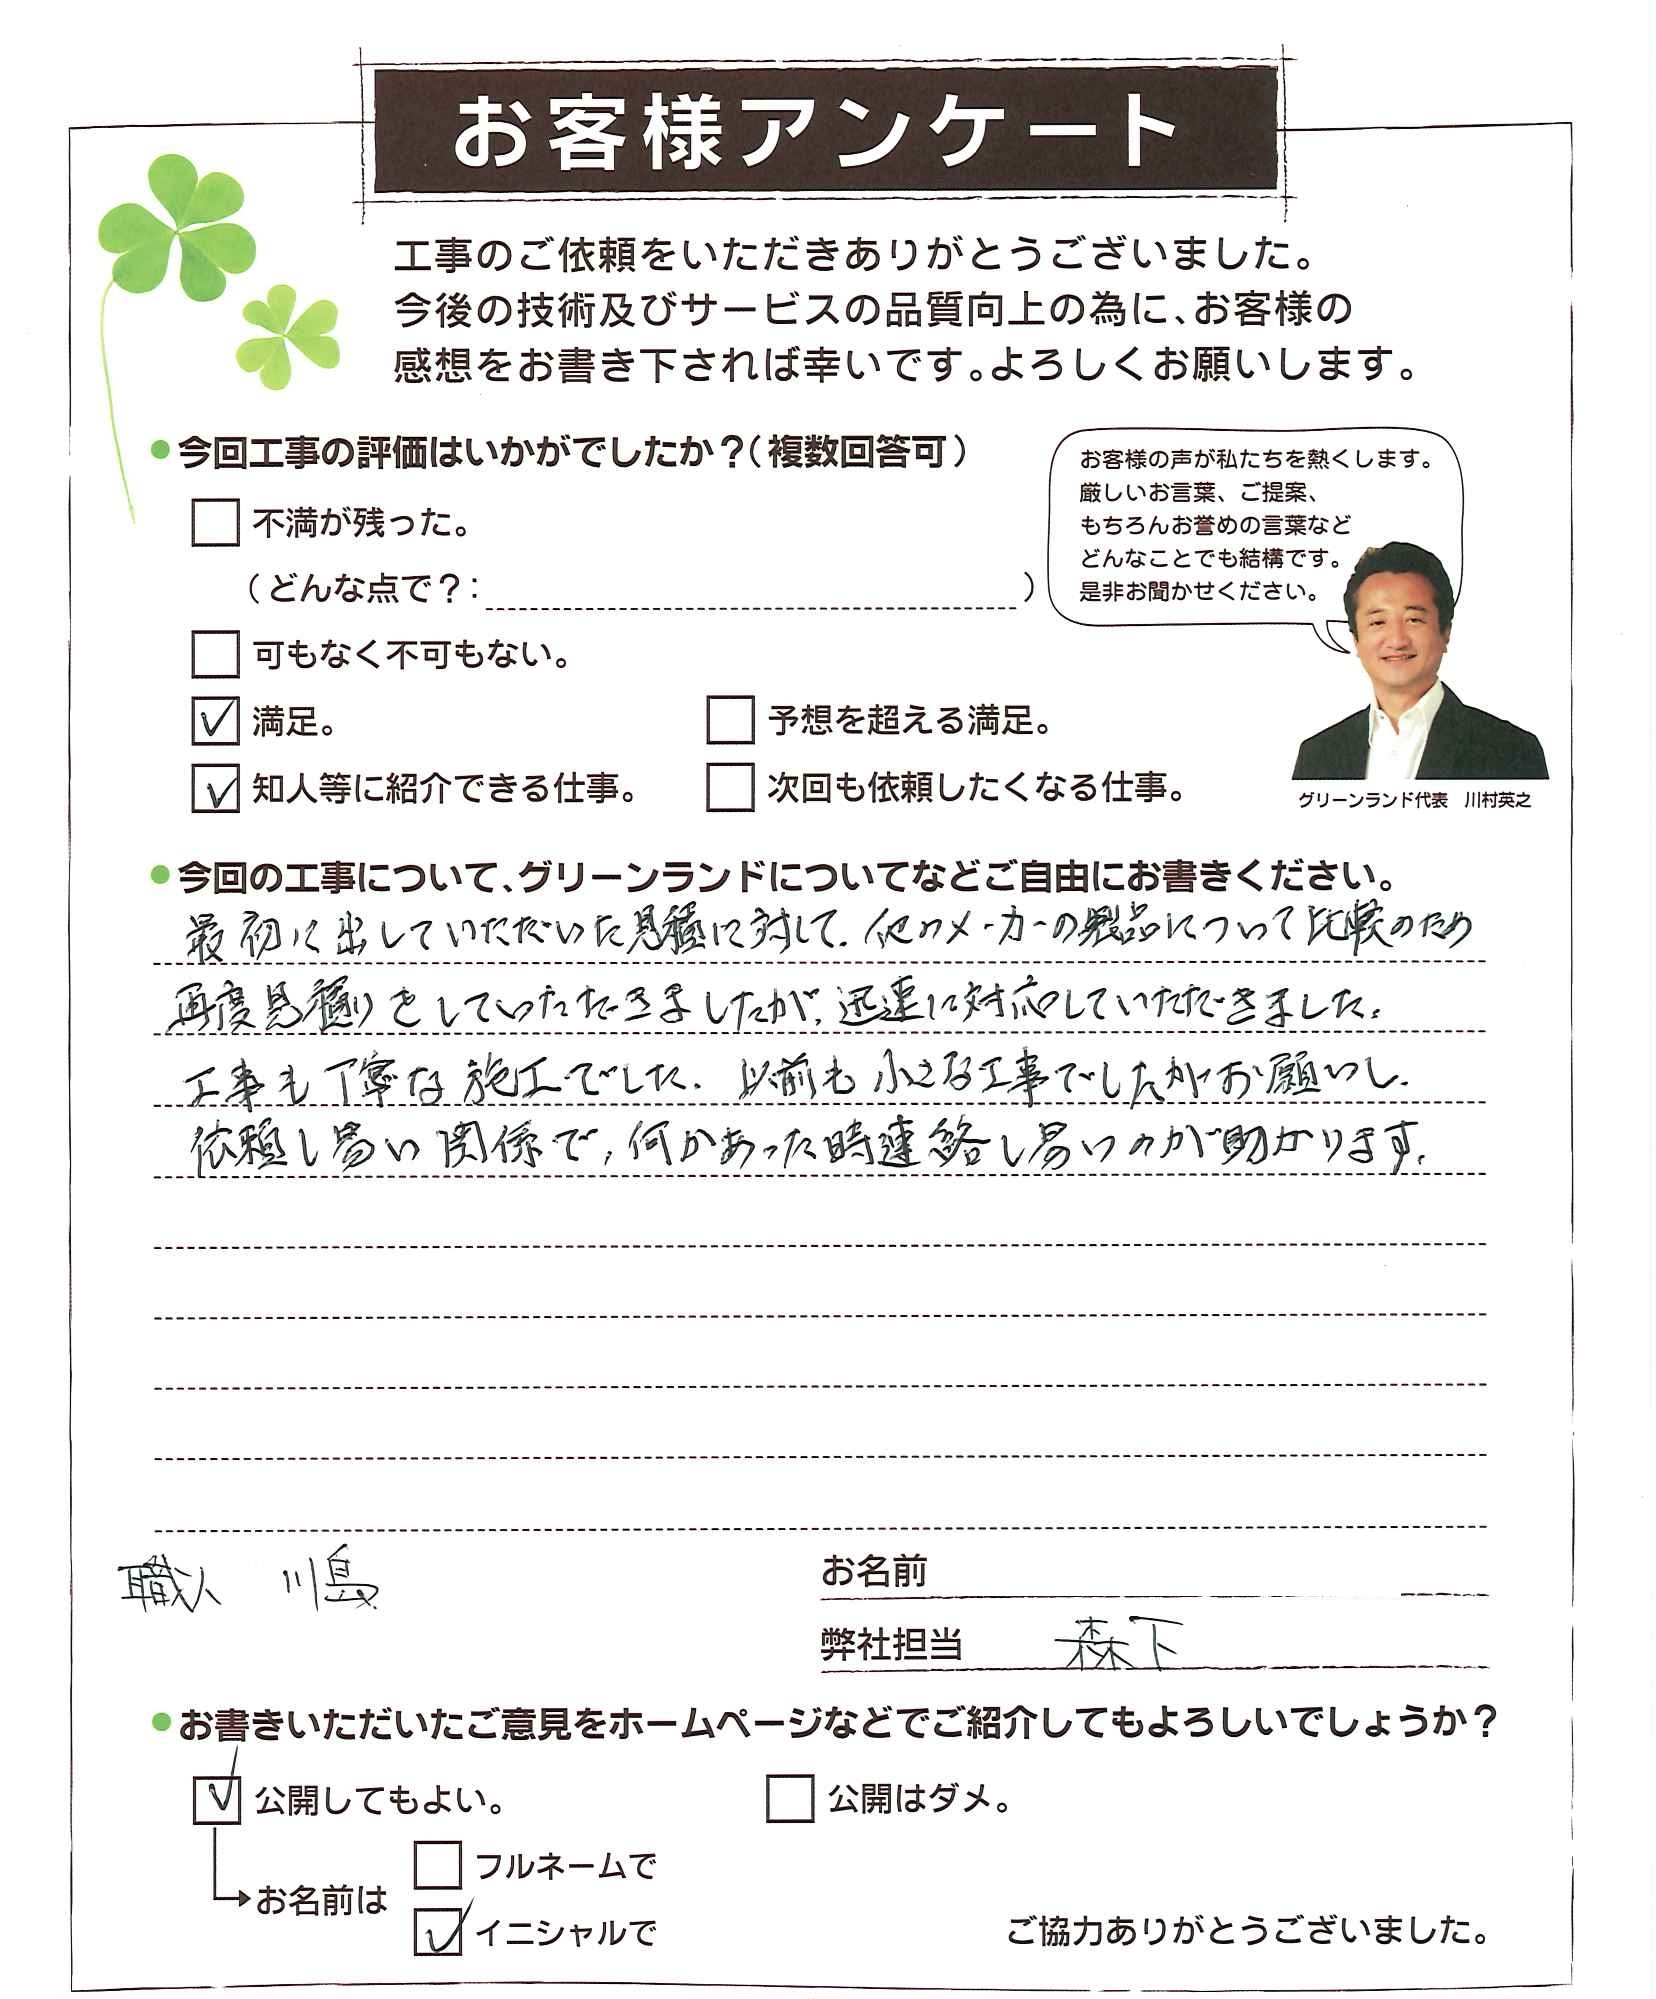 お客様アンケート
工事のご依頼をいただきありがとうございました。
今後の技術及びサービスの品質向上の為に、お客様の
感想をお書き下されば幸いです。よろしくお願いします。
●今回工事の評価はいかがでしたか？（複数回答可）
不満が残った。
（どんな点で？：　）
可もなく不可もない。
満足。
予想を超える満足。
知人等に紹介できる仕事。
次回も依頼したくなる仕事。
お客様の声が私たちを熱くします。
厳しいお言葉、ご提案、
もちろんお誉めの言葉など
どんなことでも結構です。
是非お聞かせください。
グリーンランド代表　川村英之
●今回の工事について、グリーンランドについてなどご自由にお書きください。
最初に出していただいた見積に対して、他のメーカーの製品について比較のため
再度見積りをしていただきましたが、迅速に対応していただきました。
工事も丁寧な施工でした。以前も小さな工事でしたがお願いし、
依頼し易い関係で、何かあった時連絡し易いのが助かります。
職人　川島
お名前
弊社担当　森下
●お書きいただいたご意見をホームページなどでご紹介してもよろしいでしょうか？
公開してもよい。
公開はダメ。
お名前は
フルネームで
イニシャルで
ご協力ありがとうございました。